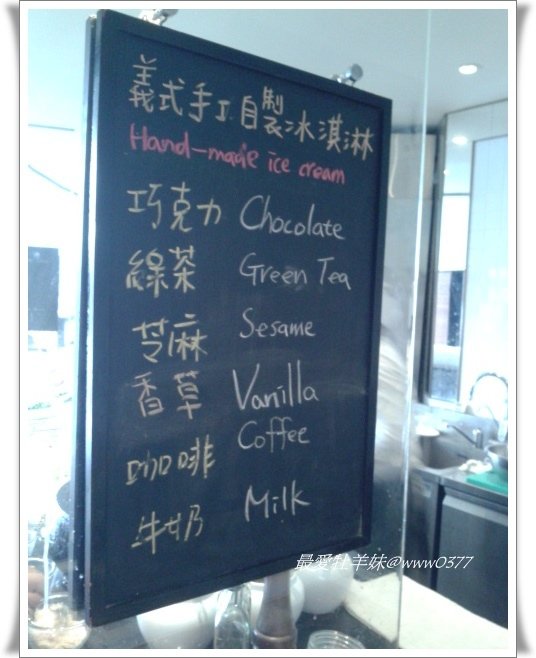 義式手工自製冰淇淋
Hand-made ice cream
巧克力 Chocolate
綠茶 Green Tea
芝麻 Sesame
香草 Vanilla
咖啡 Coffee
牛奶 Milk
最愛牡羊妹@www0377